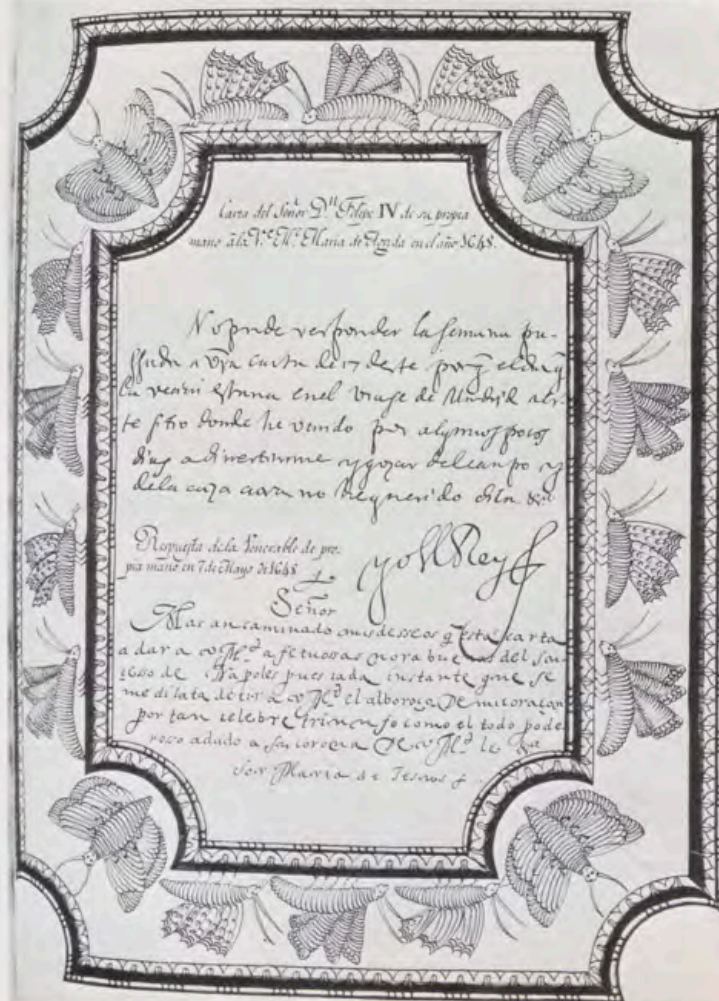 Carta del Señor D.n Felipe IV de su propia
mano â la V.e M.e Maria de Agreda en el año 1648.
No pude responder la semana pa-
ssada a vra carta de 17 deste porq̃ el dia q̃
la recivi estava en el viage de Madrid a es-
te sitio donde he venido por algunos pocos
dias a divertirme y goçar del canpo y
de la caza aora no he querido &.a
yo el Rey
Respuesta de la Venerable de pro-
pia mano en 7 de Mayo de 1648
Señor
Mas an caminado mis desseos q̃ esta carta
a dar a V. M.d afetuossas norabuenas del su-
cesso de Napoles pues cada instante que se
me dilata decir a V. M.d el alboroço de mi coraçon
por tan celebre triunfo como el todo pode-
roso a dado a la corona de V. M.d
Sor Maria de Jesus